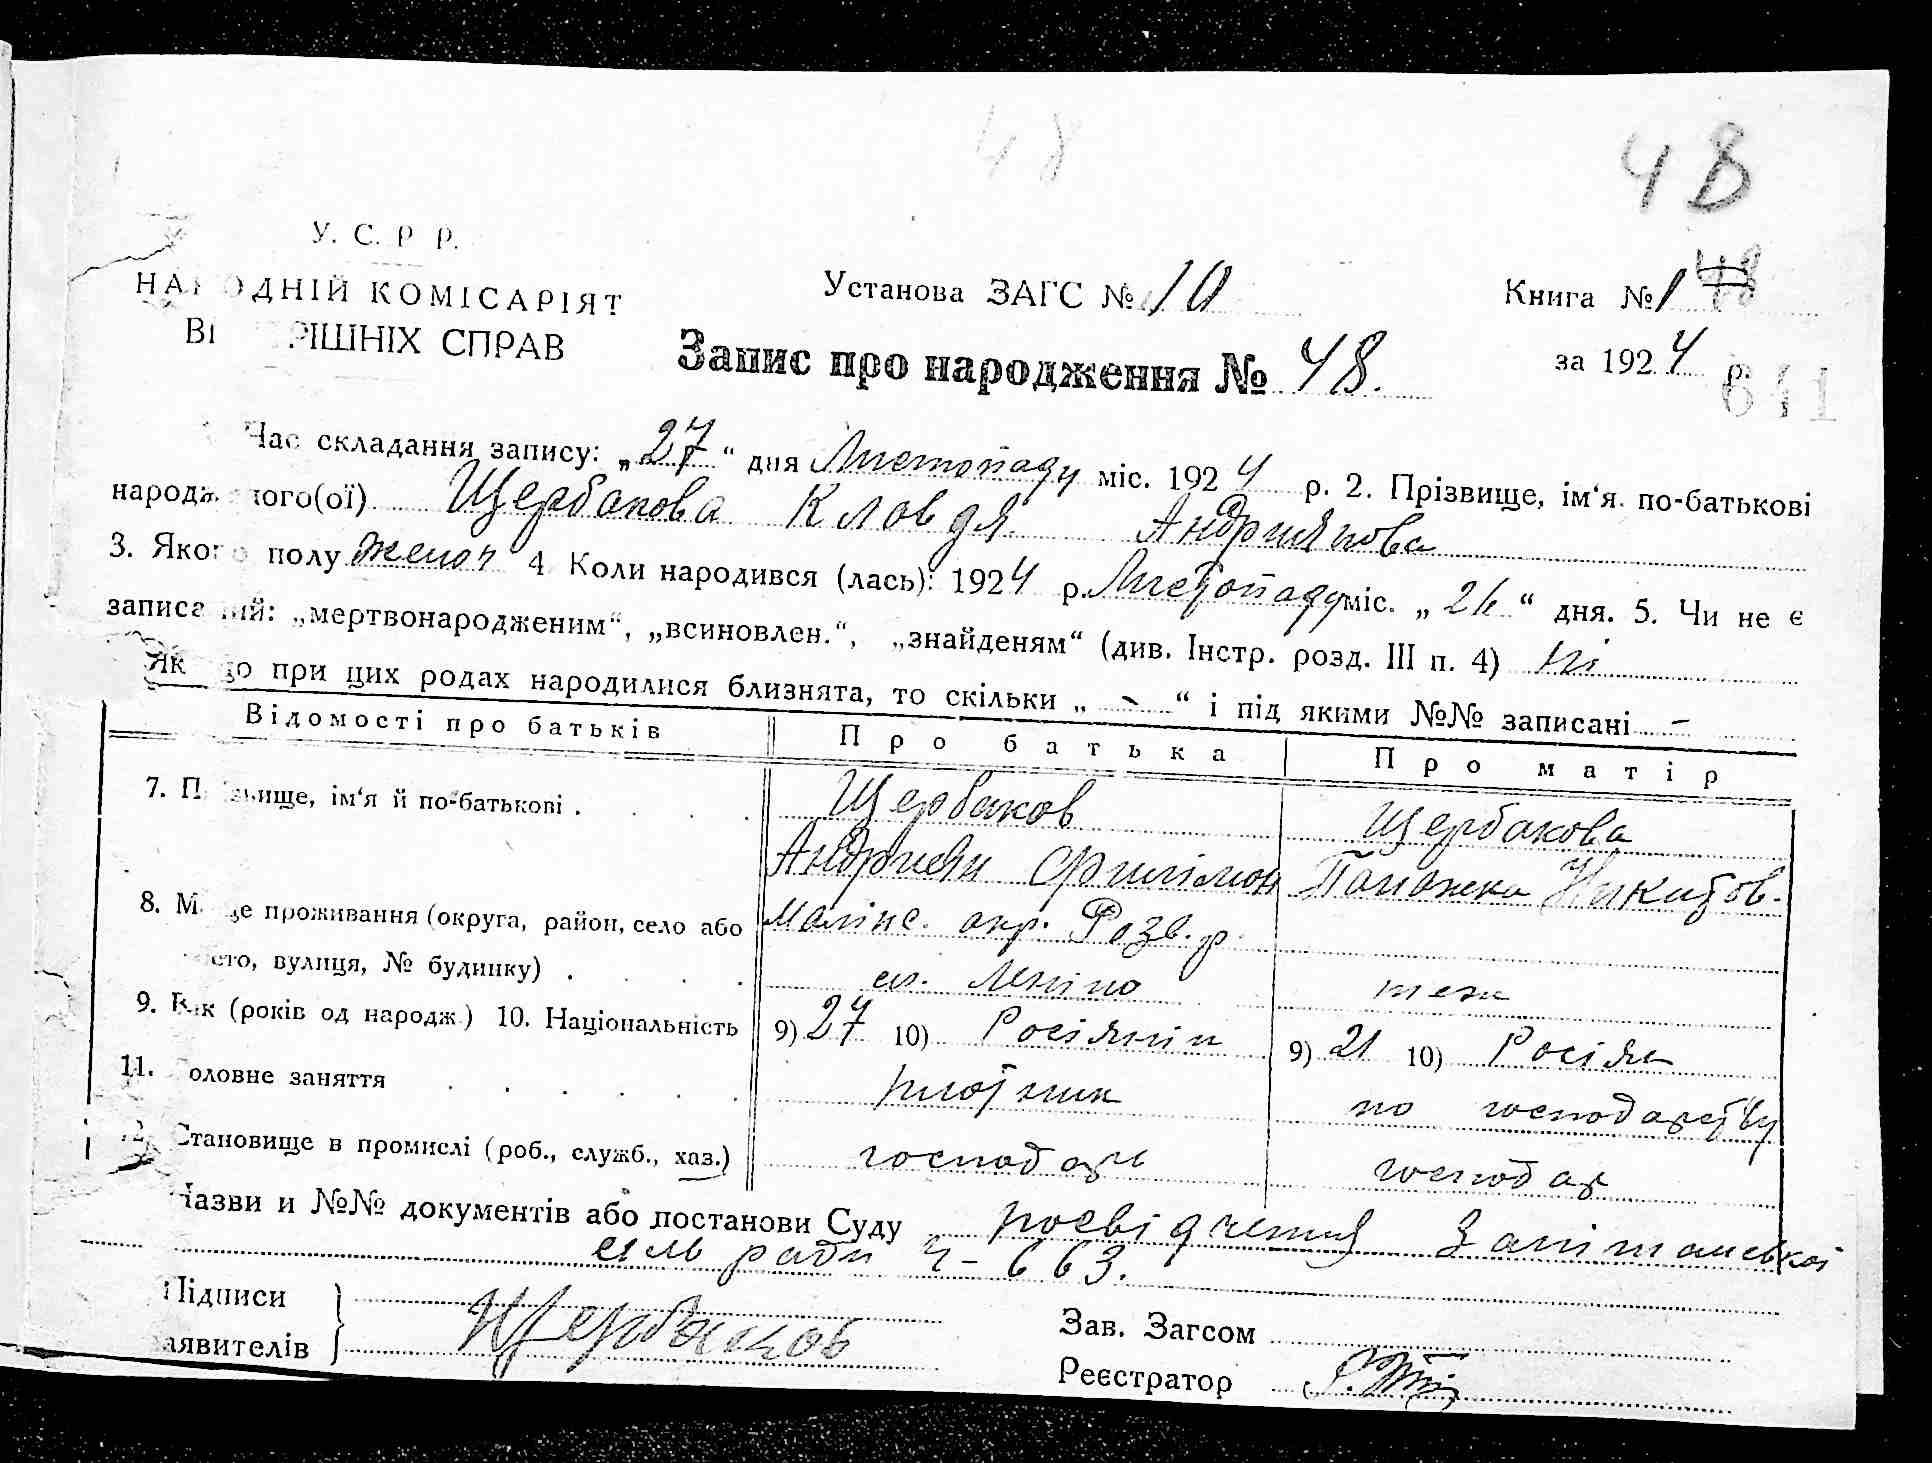 48
48
У. С. Р Р.
НАРОДНІЙ КОМІСАРІЯТ
ВІ РІШНІХ СПРАВ
Установа ЗАГС № 10
Книга № 1 48
за 1924 р.
641
Запис про народження № 48.
Час складання запису: „27“ дня Листопаду міс. 1924 р. 2. Прізвище, ім‘я. по-батькові
народж ного(ої) Щербакова Кловдя Андриянова
3. Якого полу женоч 4 Коли народився (лась): 1924 р. Листопаду міс. „26“ дня. 5. Чи не є
записаний: „мертвонародженим“, „всиновлен.“, „знайденям“ (див. Інстр. розд. III п. 4) ні
Якщо при цих родах народилися близнята, то скільки „ - “ і під якими №№ записані -
Відомості про батьків Про батька Про матір
7. Прізвище, ім‘я й по-батькові . Щербаков Щербакова
Андриян Филімон Никитов.
8. Місце проживання (округа, район, село або Малінс. окр. Розв. р.
місто, вулиця, № будинку) . сел. Леніно теж
9. Вік (років од народж.) 10. Національність 9) 27 10) Росіянін 9) 21 10) Росіян
11. Головне заняття плотник по господарству
12. Становище в промислі (роб., служб., хаз.) господарь господар
Назви и №№ документів або постанови Суду посвідчення
сіль ради Ч - 663.
Підписи
заявителів Щербаков
Зав. Загсом
Реєстратор